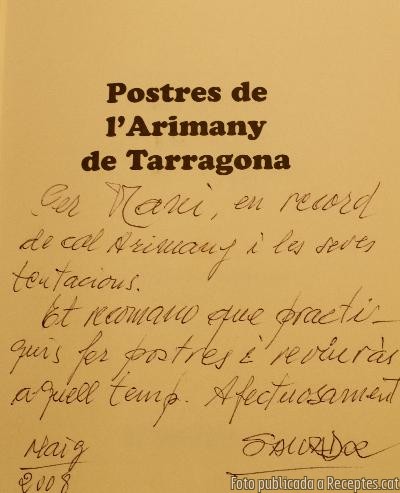 Postres de
l'Arimany
de Tarragona
Per Mani, en record
de cal Arimany i les seves
tentacions.
Et recomano que practi-
quis fer postres i reviuràs
aquell temp. Afectuosament
Maig
2008
SALVADOR
Foto publicada a Receptes.cat